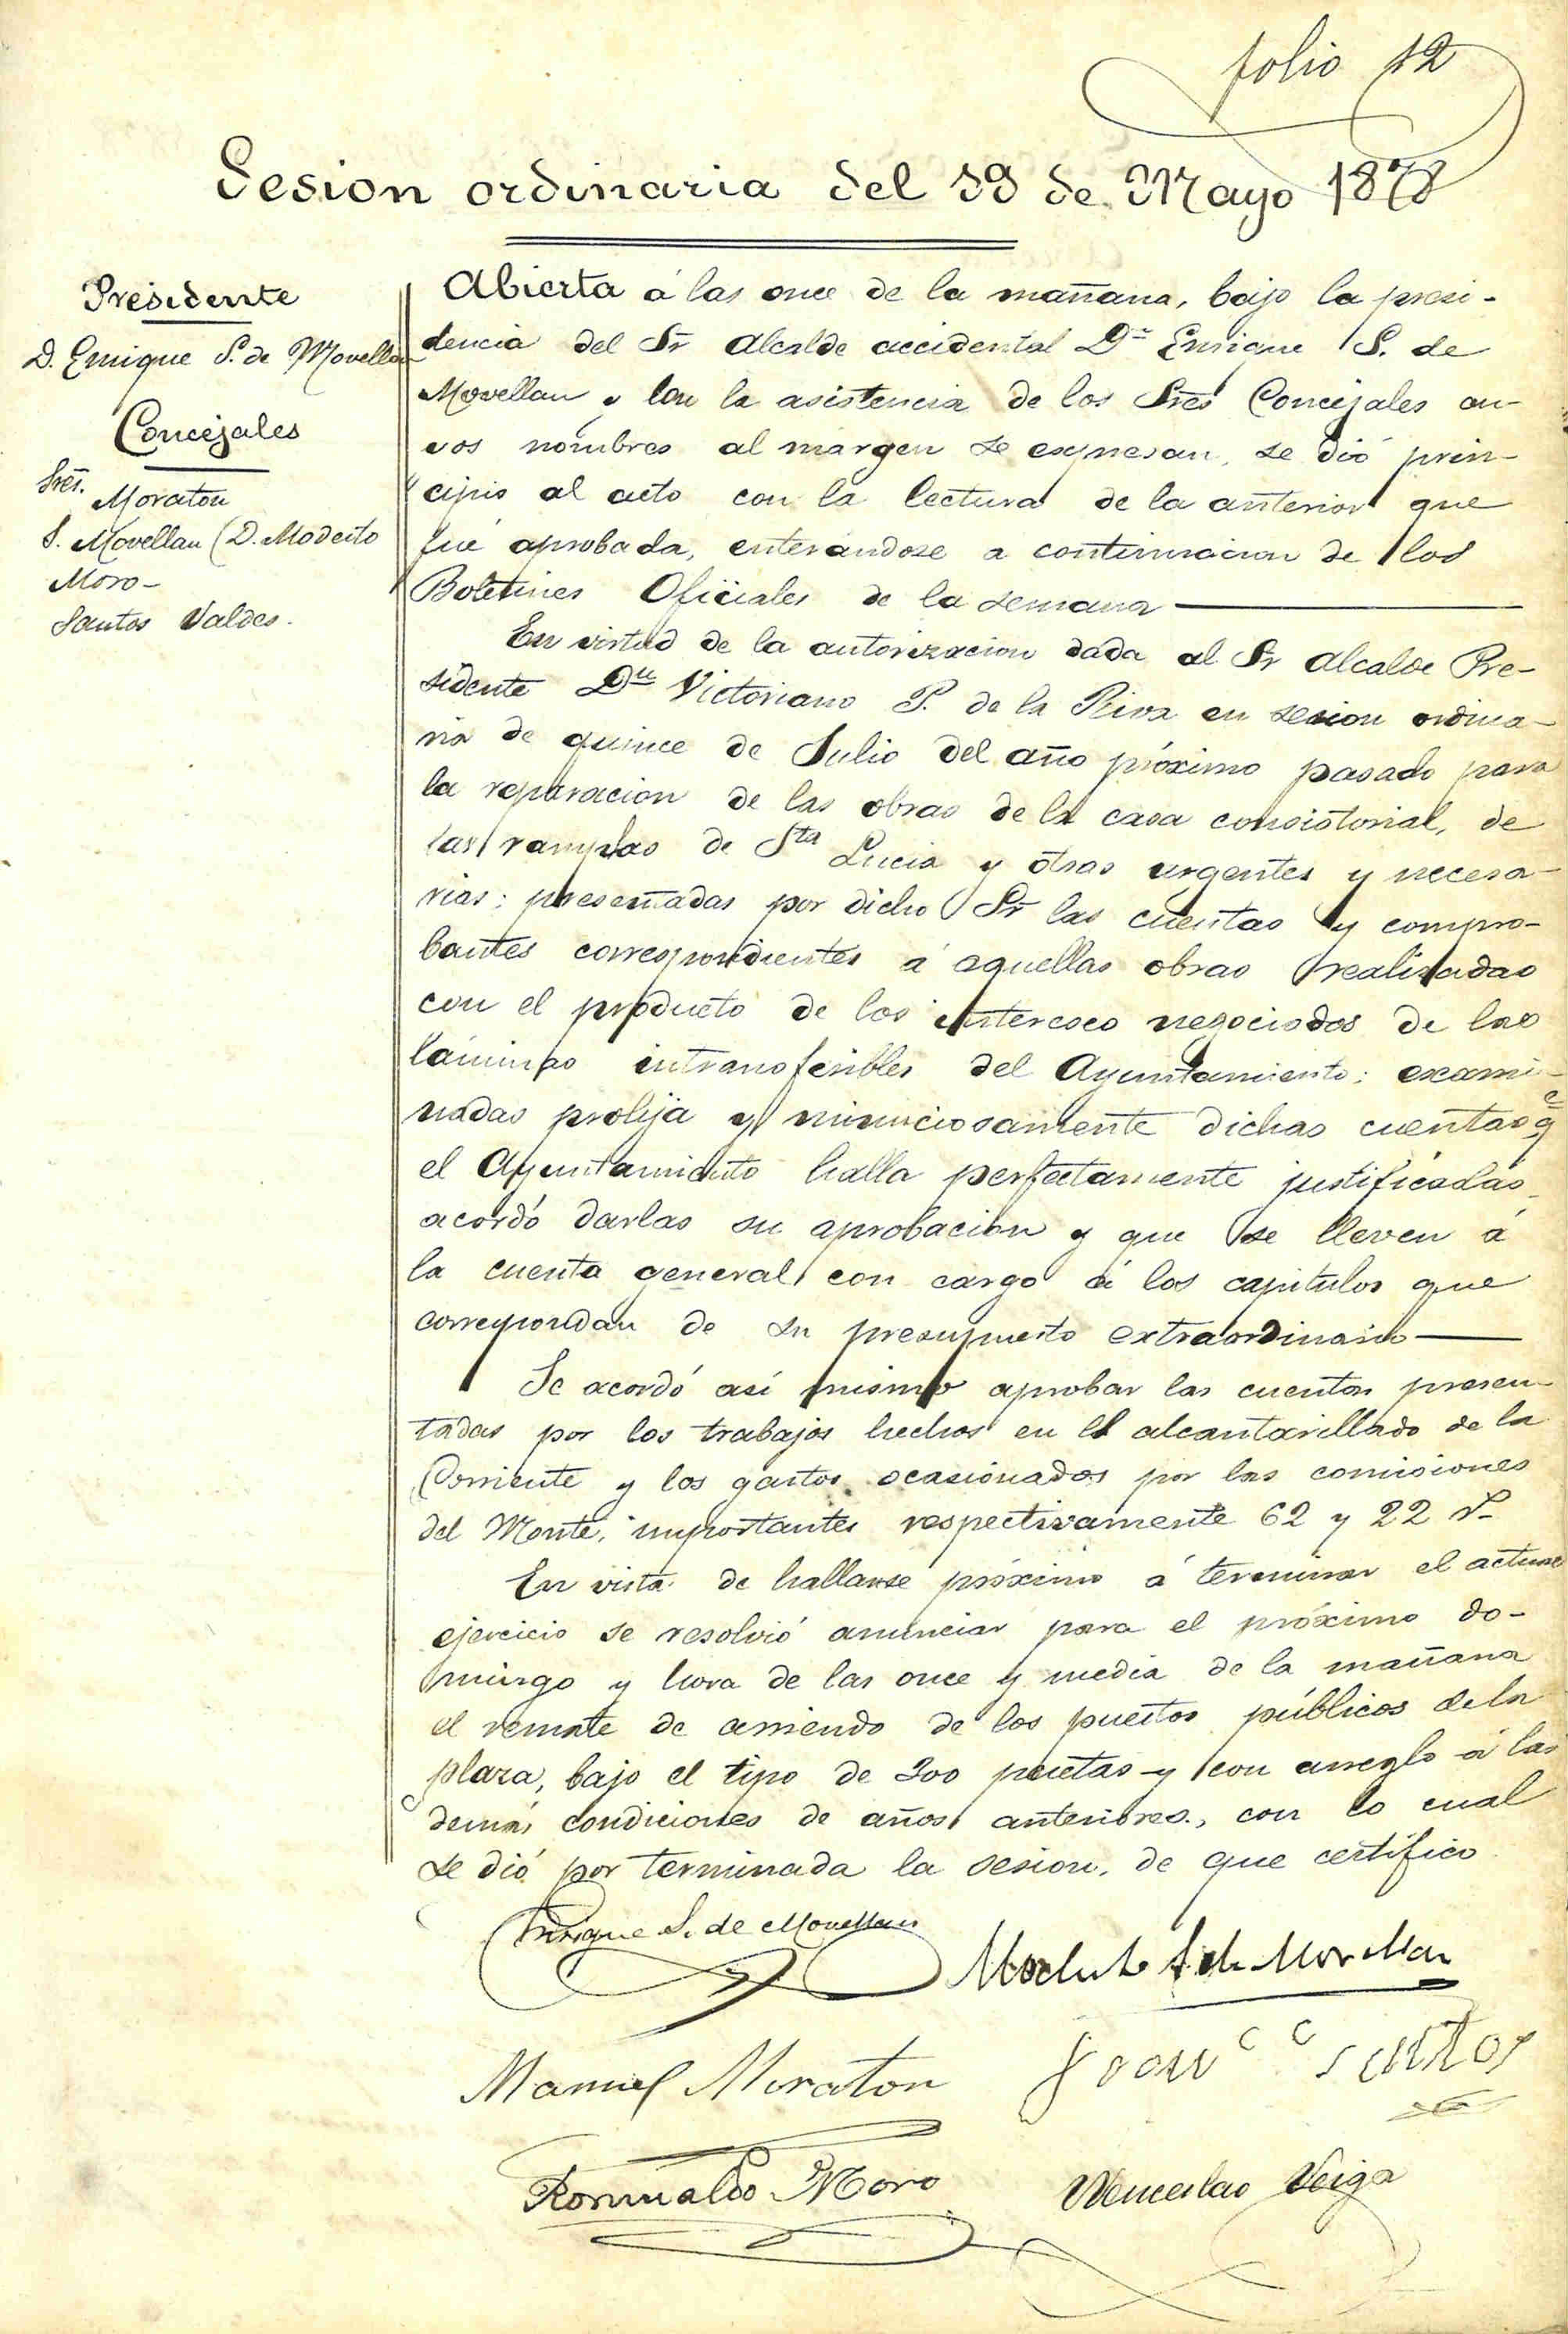 folio 12
Sesion ordinaria del 19 de Mayo 1878
Presidente
D. Enrique S. de Movellan
Concejales
Sres.
Moraton
S. Movellan (D. Modesto
Moro-
Santos Valdes.
Abierta á las once de la mañana, bajo la presi-
dencia del Sr Alcalde accidental Dn Enrique S. de
Movellan y con la asistencia de los Sres Concejales cu-
yos nombres al margen se expresan, se dió prin-
cipio al acto con la lectura de la anterior que
fué aprobada, enterándose a continuacion de los
Boletines Oficiales de la semana
En virtud de la autorizacion dada al Sr Alcalde Pre-
sidente Dn Victoriano P. de la Riva en sesion ordina-
ria de quince de Julio del año próximo pasado para
la reparacion de las obras de la casa consistorial, de
las rampas de Sta Lucia y otras urgentes y necesa-
rias; presentadas por dicho Sr las cuentas y compro-
bantes correspondientes á aquellas obras realizadas
con el producto de los intereses negociados de las
láminas intransferibles del Ayuntamiento; exami-
nadas prolija y minuciosamente dichas cuentas qe
el Ayuntamiento halla perfectamente justificadas
acordó darlas su aprobacion y que se lleven á
la cuenta general con cargo á los capitulos que
correspondan de su presupuesto extraordinario
Se acordó asi mismo aprobar las cuentas presen-
tadas por los trabajos hechos en el alcantarillado de la
Corriente y los gastos ocasionados por las comisiones
del Monte, importantes respectivamente 62 y 22 P.
En vista de hallarse próximo á terminar el actual
ejercicio se resolvió anunciar para el próximo do-
mingo y hora de las once y media de la mañana
el remate de arriendo de los puestos públicos de la
plaza, bajo el tipo de 300 pesetas y con arreglo á las
demás condiciones de años anteriores., con lo cual
se dió por terminada la sesion, de que certifico
Enrique S. de Movellan
Modesto S de Movellan
Manuel Moraton
Santos
Romualdo Moro
Wenceslao Veiga